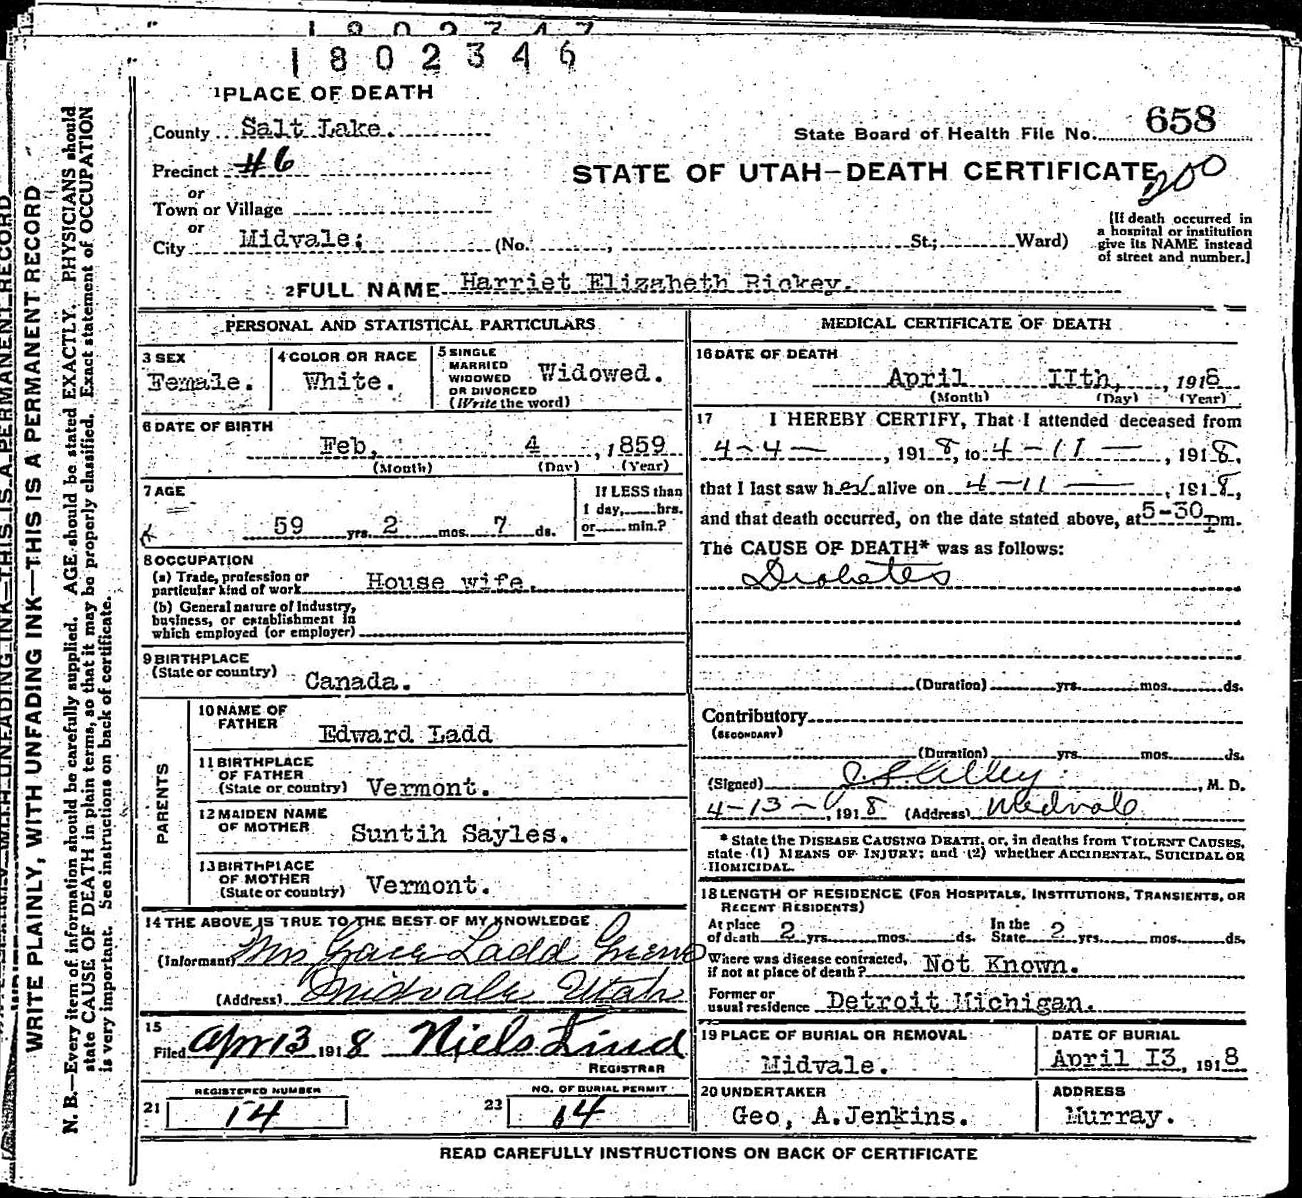 1802347
1802346
1PLACE OF DEATH
County Salt Lake.
State Board of Health File No. 658
Precinct #6
STATE OF UTAH—DEATH CERTIFICATE
200
or
Town or Village
or
City Midvale; (No. , St.; Ward)
[If death occurred in
a hospital or institution
give its NAME instead
of street and number.]
2FULL NAME Harriet Elizabeth Rickey.
PERSONAL AND STATISTICAL PARTICULARS
3 SEX
Female.
4 COLOR OR RACE
White.
5 SINGLE
MARRIED
WIDOWED
OR DIVORCED
(Write the word)
Widowed.
6 DATE OF BIRTH
Feb, 4 , 1859
(Month) (Day) (Year)
7 AGE
59 yrs. 2 mos. 7 ds.
If LESS than
1 day, hrs.
or min.?
8 OCCUPATION
(a) Trade, profession or
particular kind of work House wife.
(b) General nature of Industry,
business, or establishment in
which employed (or employer)
9 BIRTHPLACE
(State or country) Canada.
PARENTS
10 NAME OF
FATHER Edward Ladd
11 BIRTHPLACE
OF FATHER
(State or country) Vermont.
12 MAIDEN NAME
OF MOTHER Suntih Sayles.
13 BIRTHPLACE
OF MOTHER
(State or country) Vermont.
14 THE ABOVE IS TRUE TO THE BEST OF MY KNOWLEDGE
(Informant) Mrs Grace Ladd
(Address) Midvale Utah
15
Filed Apr 13 1918 Niels Lind
REGISTRAR
REGISTERED NUMBER
21 14
NO. OF BURIAL PERMIT
23 14
MEDICAL CERTIFICATE OF DEATH
16 DATE OF DEATH
April IIth, , 1918
(Month) (Day) (Year)
17 I HEREBY CERTIFY, That I attended deceased from
4-4- , 1918, to 4-11- , 1918,
that I last saw her alive on 4-11- , 1918,
and that death occurred, on the date stated above, at 5-30 pm.
The CAUSE OF DEATH* was as follows:
Diabetes
(Duration) yrs. mos. ds.
Contributory
(SECONDARY)
(Duration) yrs. mos. ds.
(Signed) Alley , M. D.
4-13- , 1918 (Address) Midvale
* State the DISEASE CAUSING DEATH, or, in deaths from VIOLENT CAUSES,
state (1) MEANS OF INJURY; and (2) whether ACCIDENTAL, SUICIDAL OR
HOMICIDAL.
18 LENGTH OF RESIDENCE (FOR HOSPITALS, INSTITUTIONS, TRANSIENTS, OR
RECENT RESIDENTS)
At place
of death 2 yrs. mos. ds. In the
State 2 yrs. mos. ds.
Where was disease contracted,
if not at place of death? Not Known.
Former or
usual residence Detroit Michigan.
19 PLACE OF BURIAL OR REMOVAL
Midvale.
DATE OF BURIAL
April I3, 1918
20 UNDERTAKER
Geo, A.Jenkins.
ADDRESS
Murray.
READ CAREFULLY INSTRUCTIONS ON BACK OF CERTIFICATE
WRITE PLAINLY, WITH UNFADING INK—THIS IS A PERMANENT RECORD
N. B.—Every item of information should be carefully supplied. AGE should be stated EXACTLY. PHYSICIANS should
state CAUSE OF DEATH in plain terms, so that it may be properly classified. Exact statement of OCCUPATION
is very important. See instructions on back of certificate.